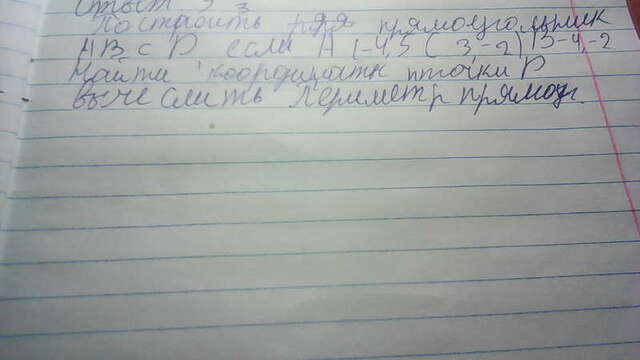 Ответ 3
Построить прямоугольник
АВСD если А (-4,5 С 3,-2) В-4,-2
Найти координаты точки D
вычеслить периметр прямоуг.